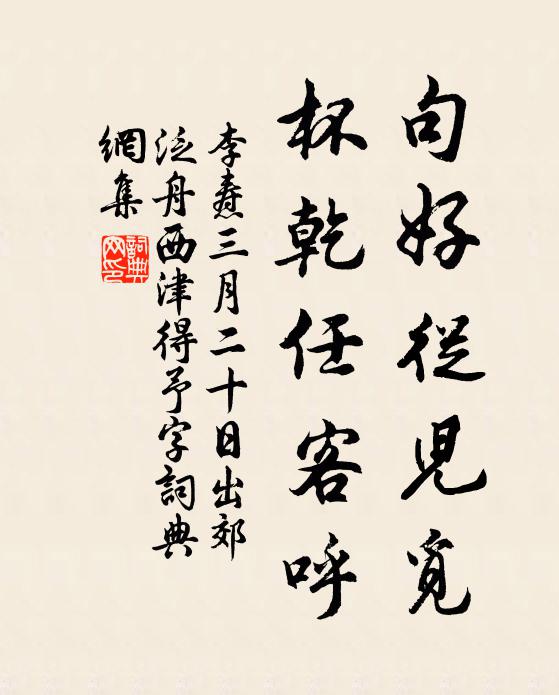 句好從児覓
杯乾任客呼
李燾三月二十日出郊
泛舟西津得予字詞典
網集
詞典网印